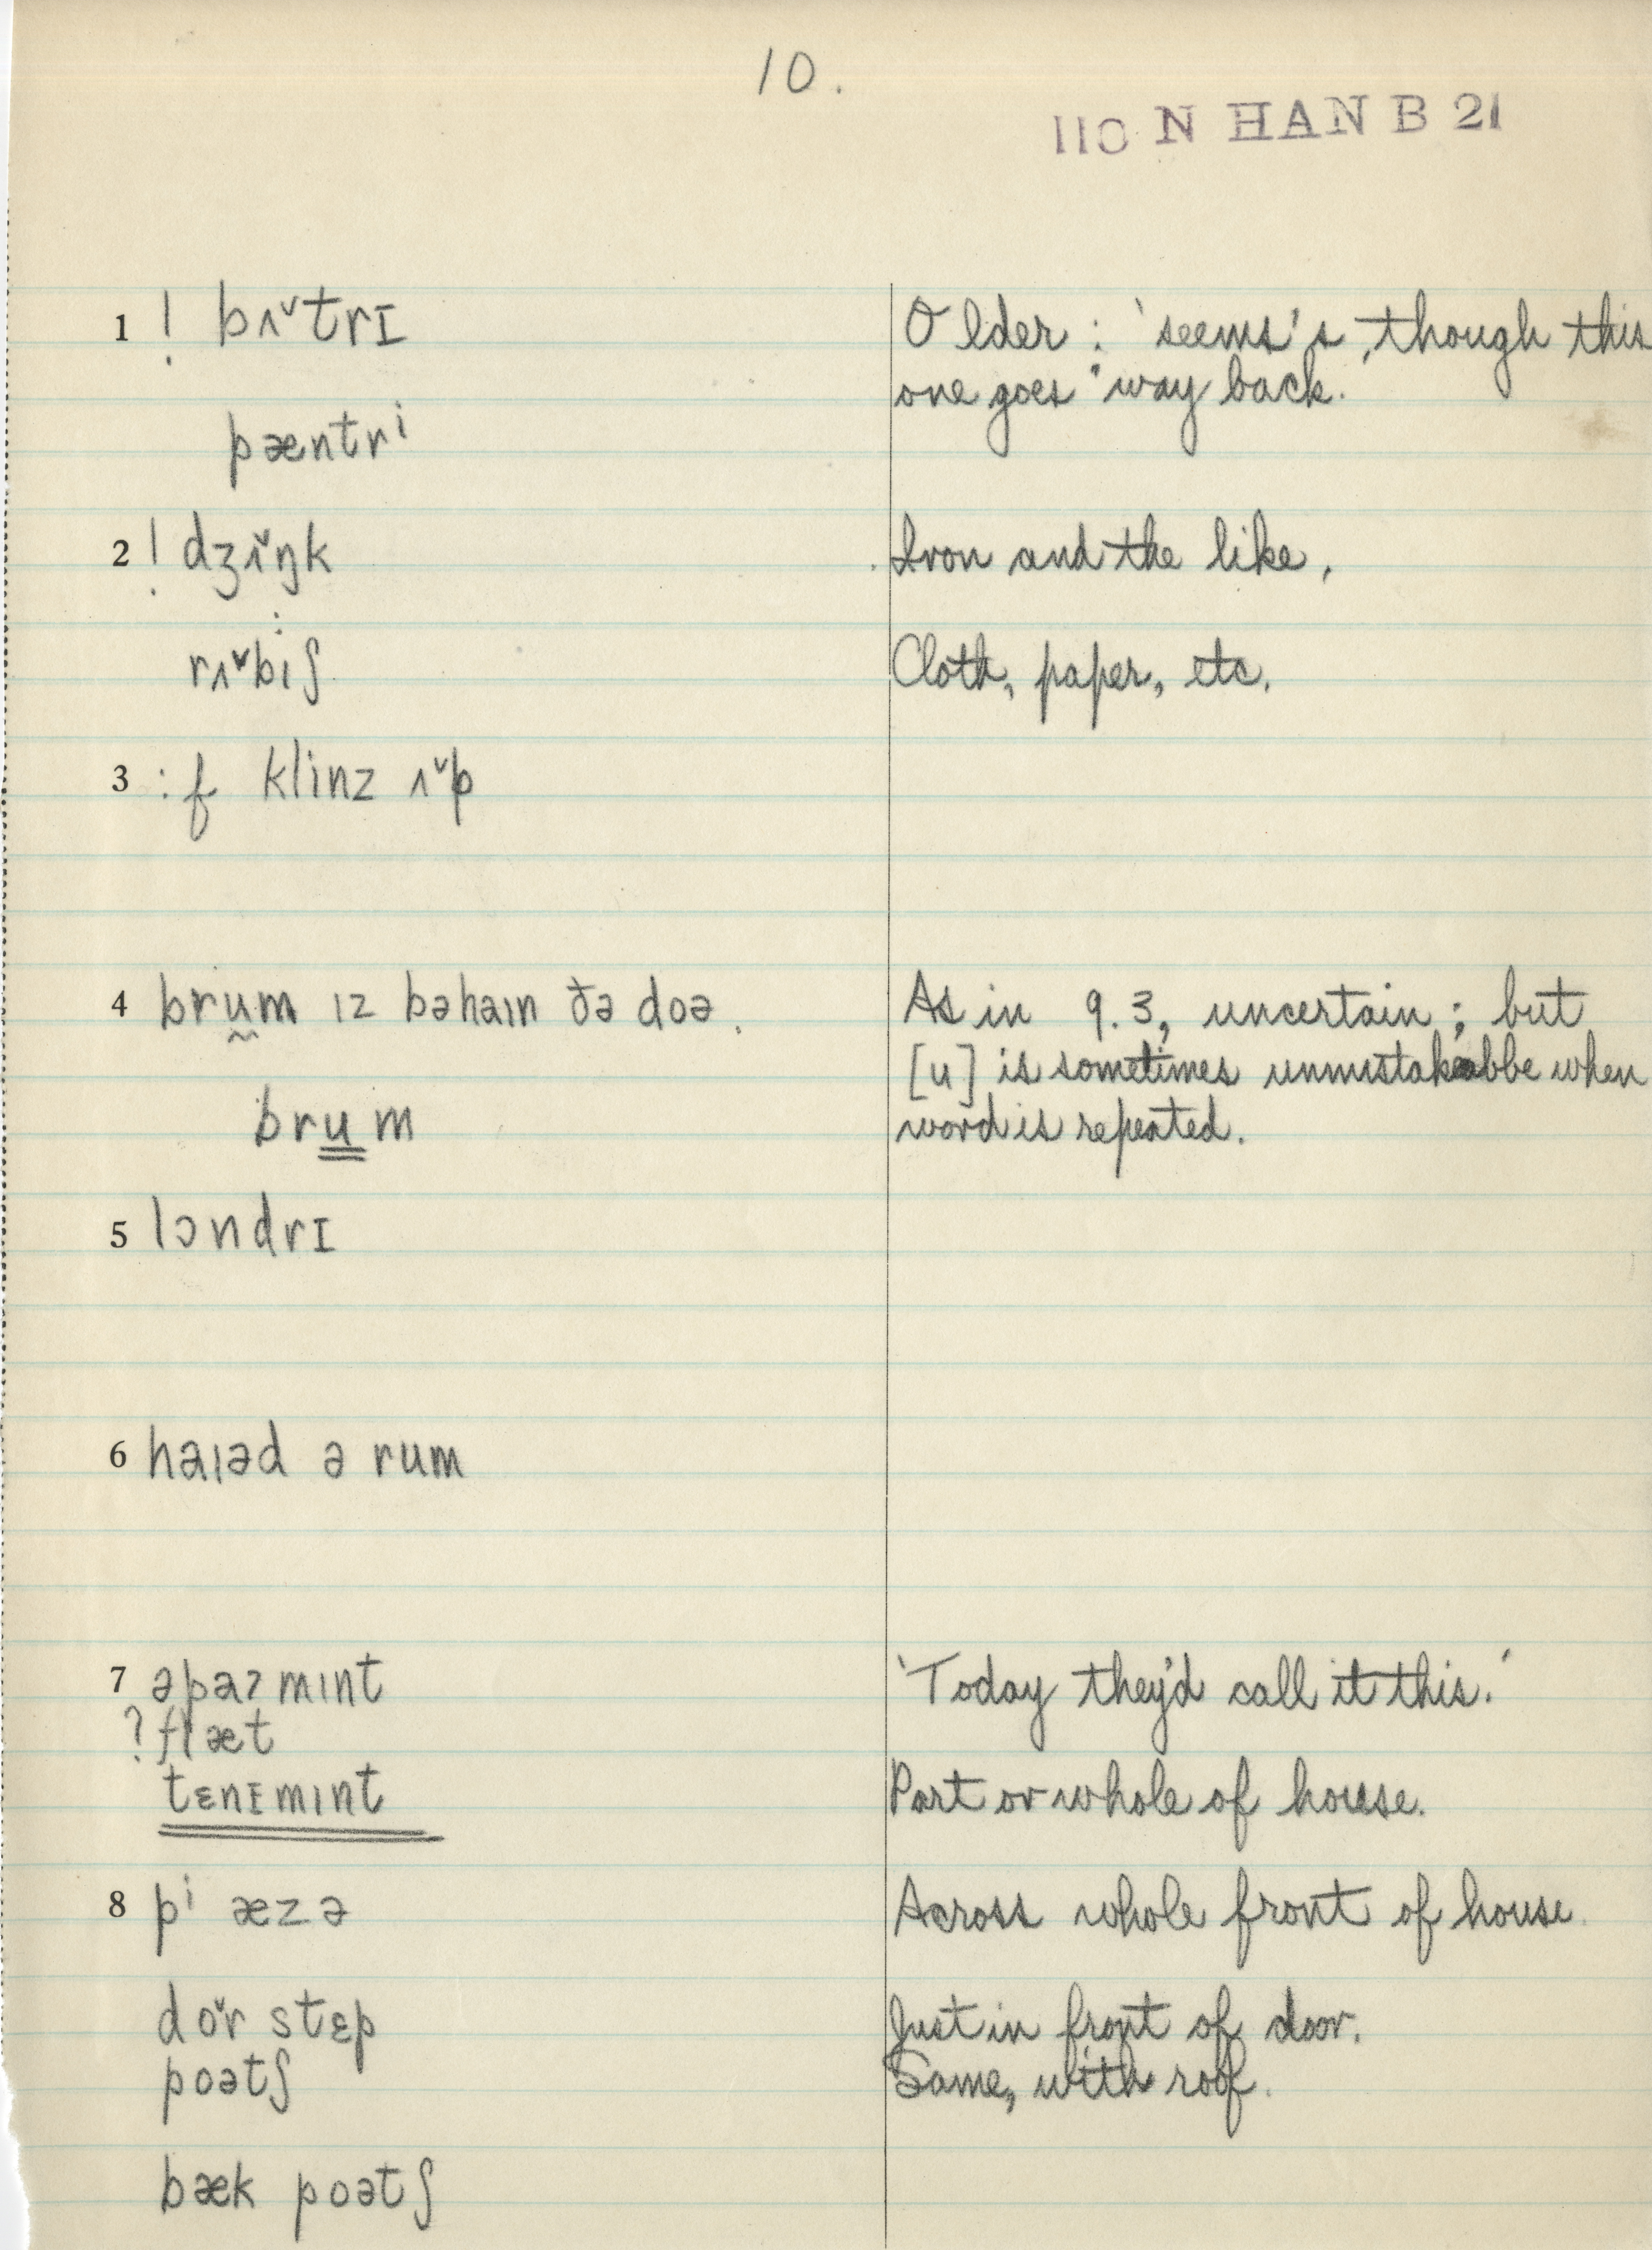 10.
110 N HAN B 21
1 ! bʌ˅trɪ
Older: 'seems's, though this
one goes 'way back.
pæntrⁱ
2 ! dʒʌ̌ŋk
Iron and the like.
rʌ˅biʃ
Cloth, paper, etc.
3 : f klinz ʌ˅p
4 brṵm ɪz bəhaɪn ðə doə.
As in 9.3, uncertain; but
[u] is sometimes unmistakabbe when
brum
word is repeated.
5 lɔndrɪ
6 haɪəd ə rum
7 əpaʔmɪnt
'Today they'd call it this.'
? flæt
tɛnɪmɪnt
Part or whole of house.
8 pⁱ æzə
Across whole front of house.
do˅r stɛp
Just in front of door.
poətʃ
Same, with roof.
bæk poətʃ